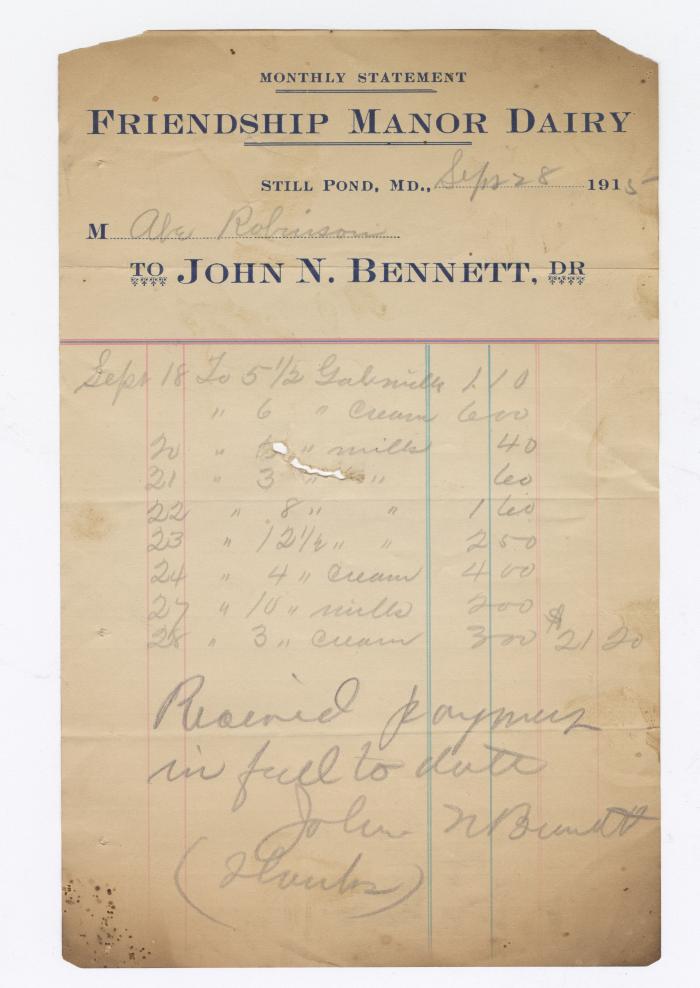 MONTHLY STATEMENT
FRIENDSHIP MANOR DAIRY
STILL POND, MD., Sept 28 1915
M Abe Robinson
TO JOHN N. BENNETT, DR
Sept 18 To 5 1/2 Gals milk 1 10
" 6 " Cream 6 00
20 " " milk 40
21 " 3 " " 60
22 " 8 " " 1 60
23 " 12 1/2 " " 2 50
24 " 4 " Cream 4 00
27 " 10 " milk 2 00
28 " 3 " Cream 3 00 $ 21 20
Received payment
in full to date
John N Bennett
(Thanks)